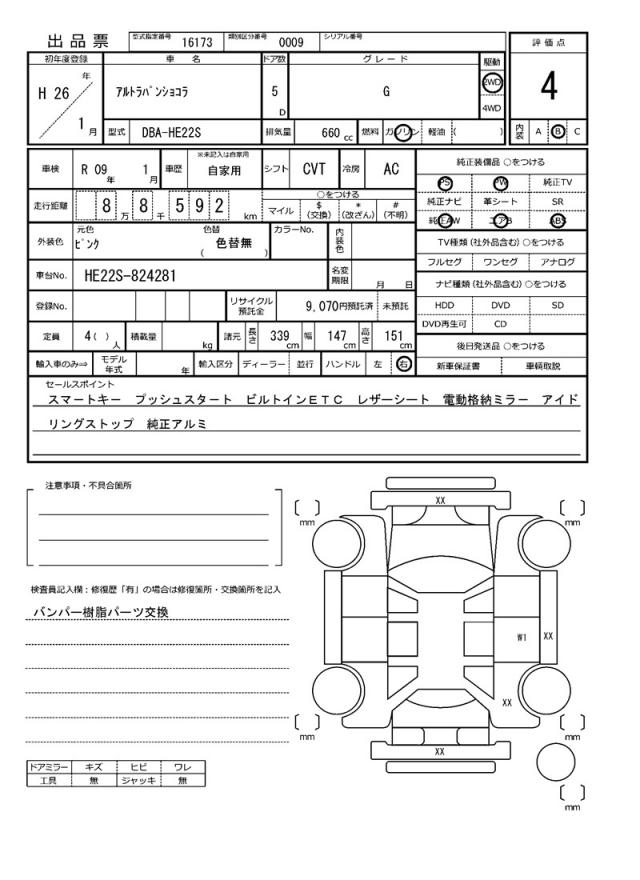 出品票 型式指定番号 16173 類別区分番号 0009 シリアル番号
初年度登録 車 名 ドア数 グレード 駆動 評価点
H 26 年 1 月 アルトラパンショコラ 5 D G 2WD 4WD 4
型式 DBA-HE22S 排気量 660 cc 燃料 ガソリン 軽油 ( ) 内装 A B C
車検 R 09 年 1 月 車歴 ※未記入は自家用 自家用 シフト CVT 冷房 AC 純正装備品 ○をつける
PS PW 純正TV
走行距離 8 万 8 千 5 9 2 km ○をつける 純正ナビ 革シート SR
マイル $ (交換) * (改ざん) # (不明) 純正AW エアB ABS
外装色 元色 ピンク 色替 ( 色替無 ) カラーNo. 内装色 TV種類 (社外品含む) ○をつける
フルセグ ワンセグ アナログ
車台No. HE22S-824281 名変期限 月 日 ナビ種類 (社外品含む) ○をつける
登録No. リサイクル預託金 9,070円預託済 未預託 HDD DVD SD
DVD再生可 CD
定員 4 ( ) 人 積載量 kg 諸元 長さ 339 cm 幅 147 cm 高さ 151 cm 後日発送品 ○をつける
輸入車のみ⇒ モデル年式 年 輸入区分 ディーラー 並行 ハンドル 左 右 新車保証書 車輌取説
セールスポイント
スマートキー プッシュスタート ビルトインETC レザーシート 電動格納ミラー アイド
リングストップ 純正アルミ
注意事項・不具合箇所
XX
mm mm
検査員記入欄:修復歴「有」の場合は修復箇所・交換箇所を記入
バンパー樹脂パーツ交換
W1 XX
XX
mm mm
XX
ドアミラー キズ ヒビ ワレ
工具 無 ジャッキ 無
mm